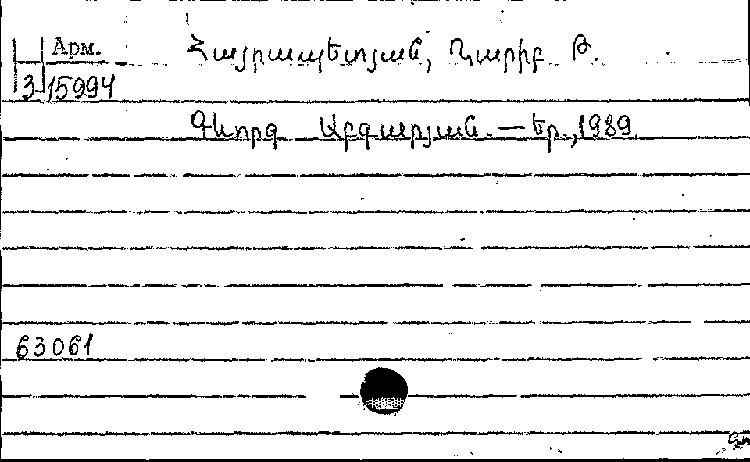 Арм. Հայրապետյան, Ղարիբ Թ.
3-15994
Գևորգ Աբգարյան. — Եր., 1989
63061